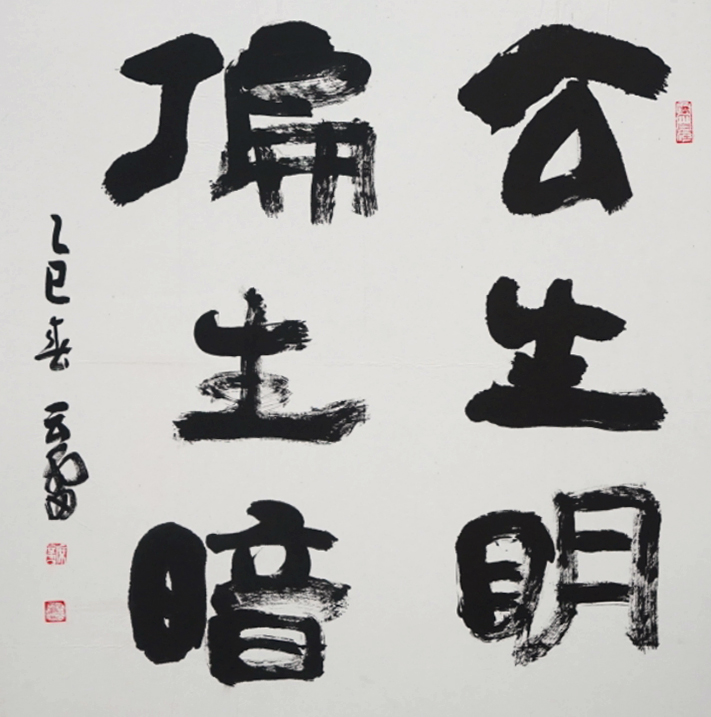 公生明
偏生暗
乙巳春 云